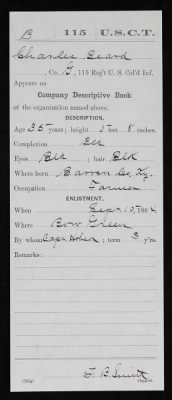 B 115 U.S.C.T.
Charles Beard
, Co. G, 115 Reg't U. S. Col'd Inf.
Appears on
Company Descriptive Book
of the organization named above.
DESCRIPTION.
Age 35 years; height 5 feet 8 inches.
Complexion Blk
Eyes Blk ; hair Blk
Where born Barren Co, Ky.
Occupation Farmer
ENLISTMENT.
When Sept. 13, 1864.
Where Bow. Green
By whom Capt ; term 3 y'rs.
Remarks:
F. B. Smith
Copyist.